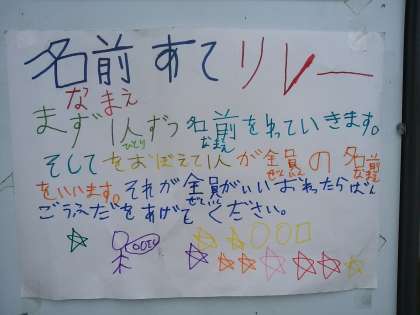 名前あてリレー
なまえ
まず1人ずつ名前をゆっていきます。
ひとり なまえ
そしてをおぼえて1人が全員の名前
ぜんいん なまえ
をいいます。それが全員がいいおわったらばん
ぜんいん
ごうふだをあげてください。